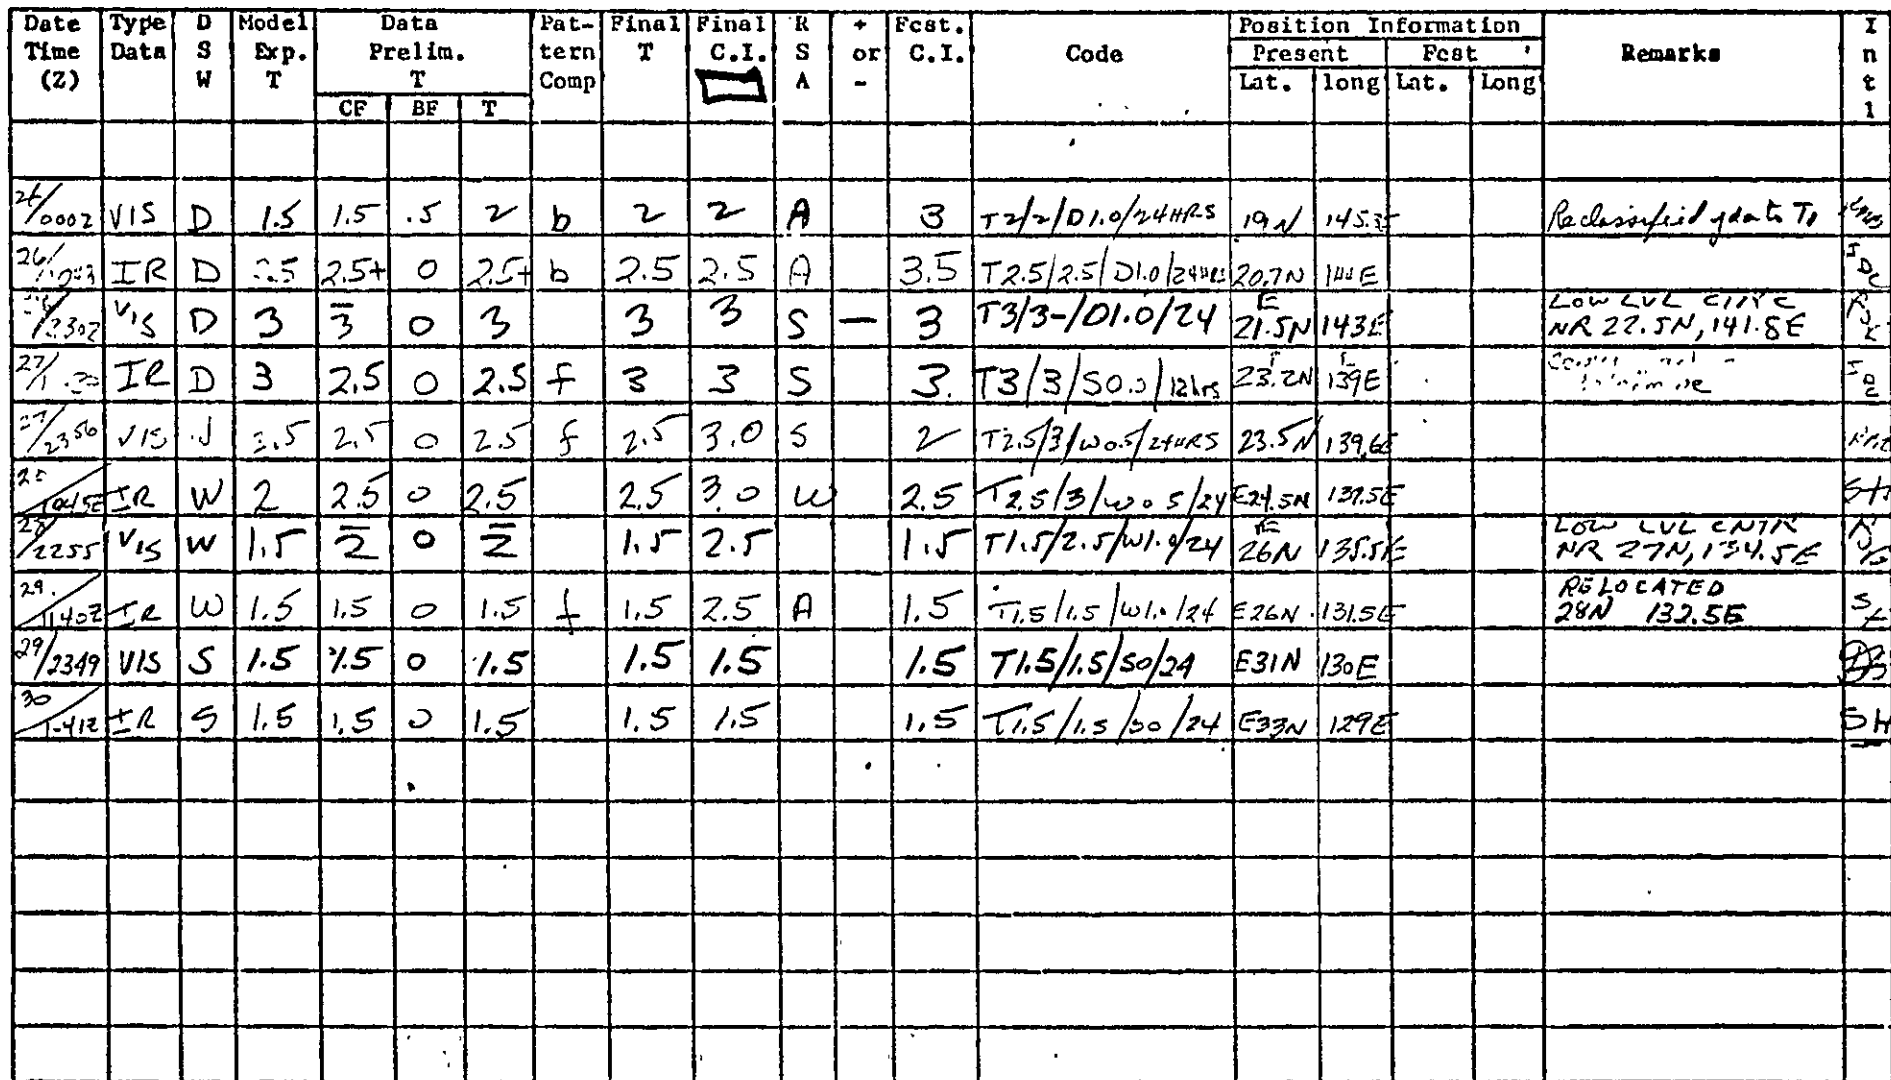 Date Time (Z) Type Data D S W Model Exp. T Data Prelim. T CF BF T Pat- tern Comp Final T Final C.I. R S A + or - Fcst. C.I. Code Position Information Present Lat. long Fcst Lat. Long Remarks I n t l
26/0002 VIS D 1.5 1.5 .5 2 b 2 2 A 3 T2/2/D1.0/24HRS 19N Reclassified
26/ IR D 2.5+ 0 2.5+ b 2.5 2.5 A 3.5 T2.5/2.5/D1.0/24HRS 20.7N 144E
/2302 VIS D 3 3 0 3 3 3 S — 3 T3/3-/D1.0/24 E 21.5N 143E LOW LVL CIRC
NR 22.5N, 141.8E
27/ IR D 3 2.5 0 2.5 f 3 3 S 3 T3/3/S0.0/12hrs 23.2N 139E
27/2356 VIS 2.5 0 2.5 f 2.5 3.0 S 2 T2.5/3/W0.5/24HRS 23.5N 139.6E
IR W 2 2.5 0 2.5 2.5 3.0 W 2.5 T2.5/3/W0.5/24 E24.5N 137.5E SH
28/2255 VIS W 1.5 2 0 2 1.5 2.5 1.5 T1.5/2.5/W1.0/24 E 26N 135.5E LOW LVL CNTR
NR 27N, 134.5E
29/1140Z IR W 1.5 1.5 0 1.5 f 1.5 2.5 A 1.5 T1.5/1.5/W1.0/24 E26N 131.5E RELOCATED
28N 132.5E
29/2349 VIS S 1.5 1.5 0 1.5 1.5 1.5 1.5 T1.5/1.5/S0/24 E31N 130E
30/ IR S 1.5 1.5 0 1.5 1.5 1.5 1.5 T1.5/1.5/S0/24 E33N 129E SH